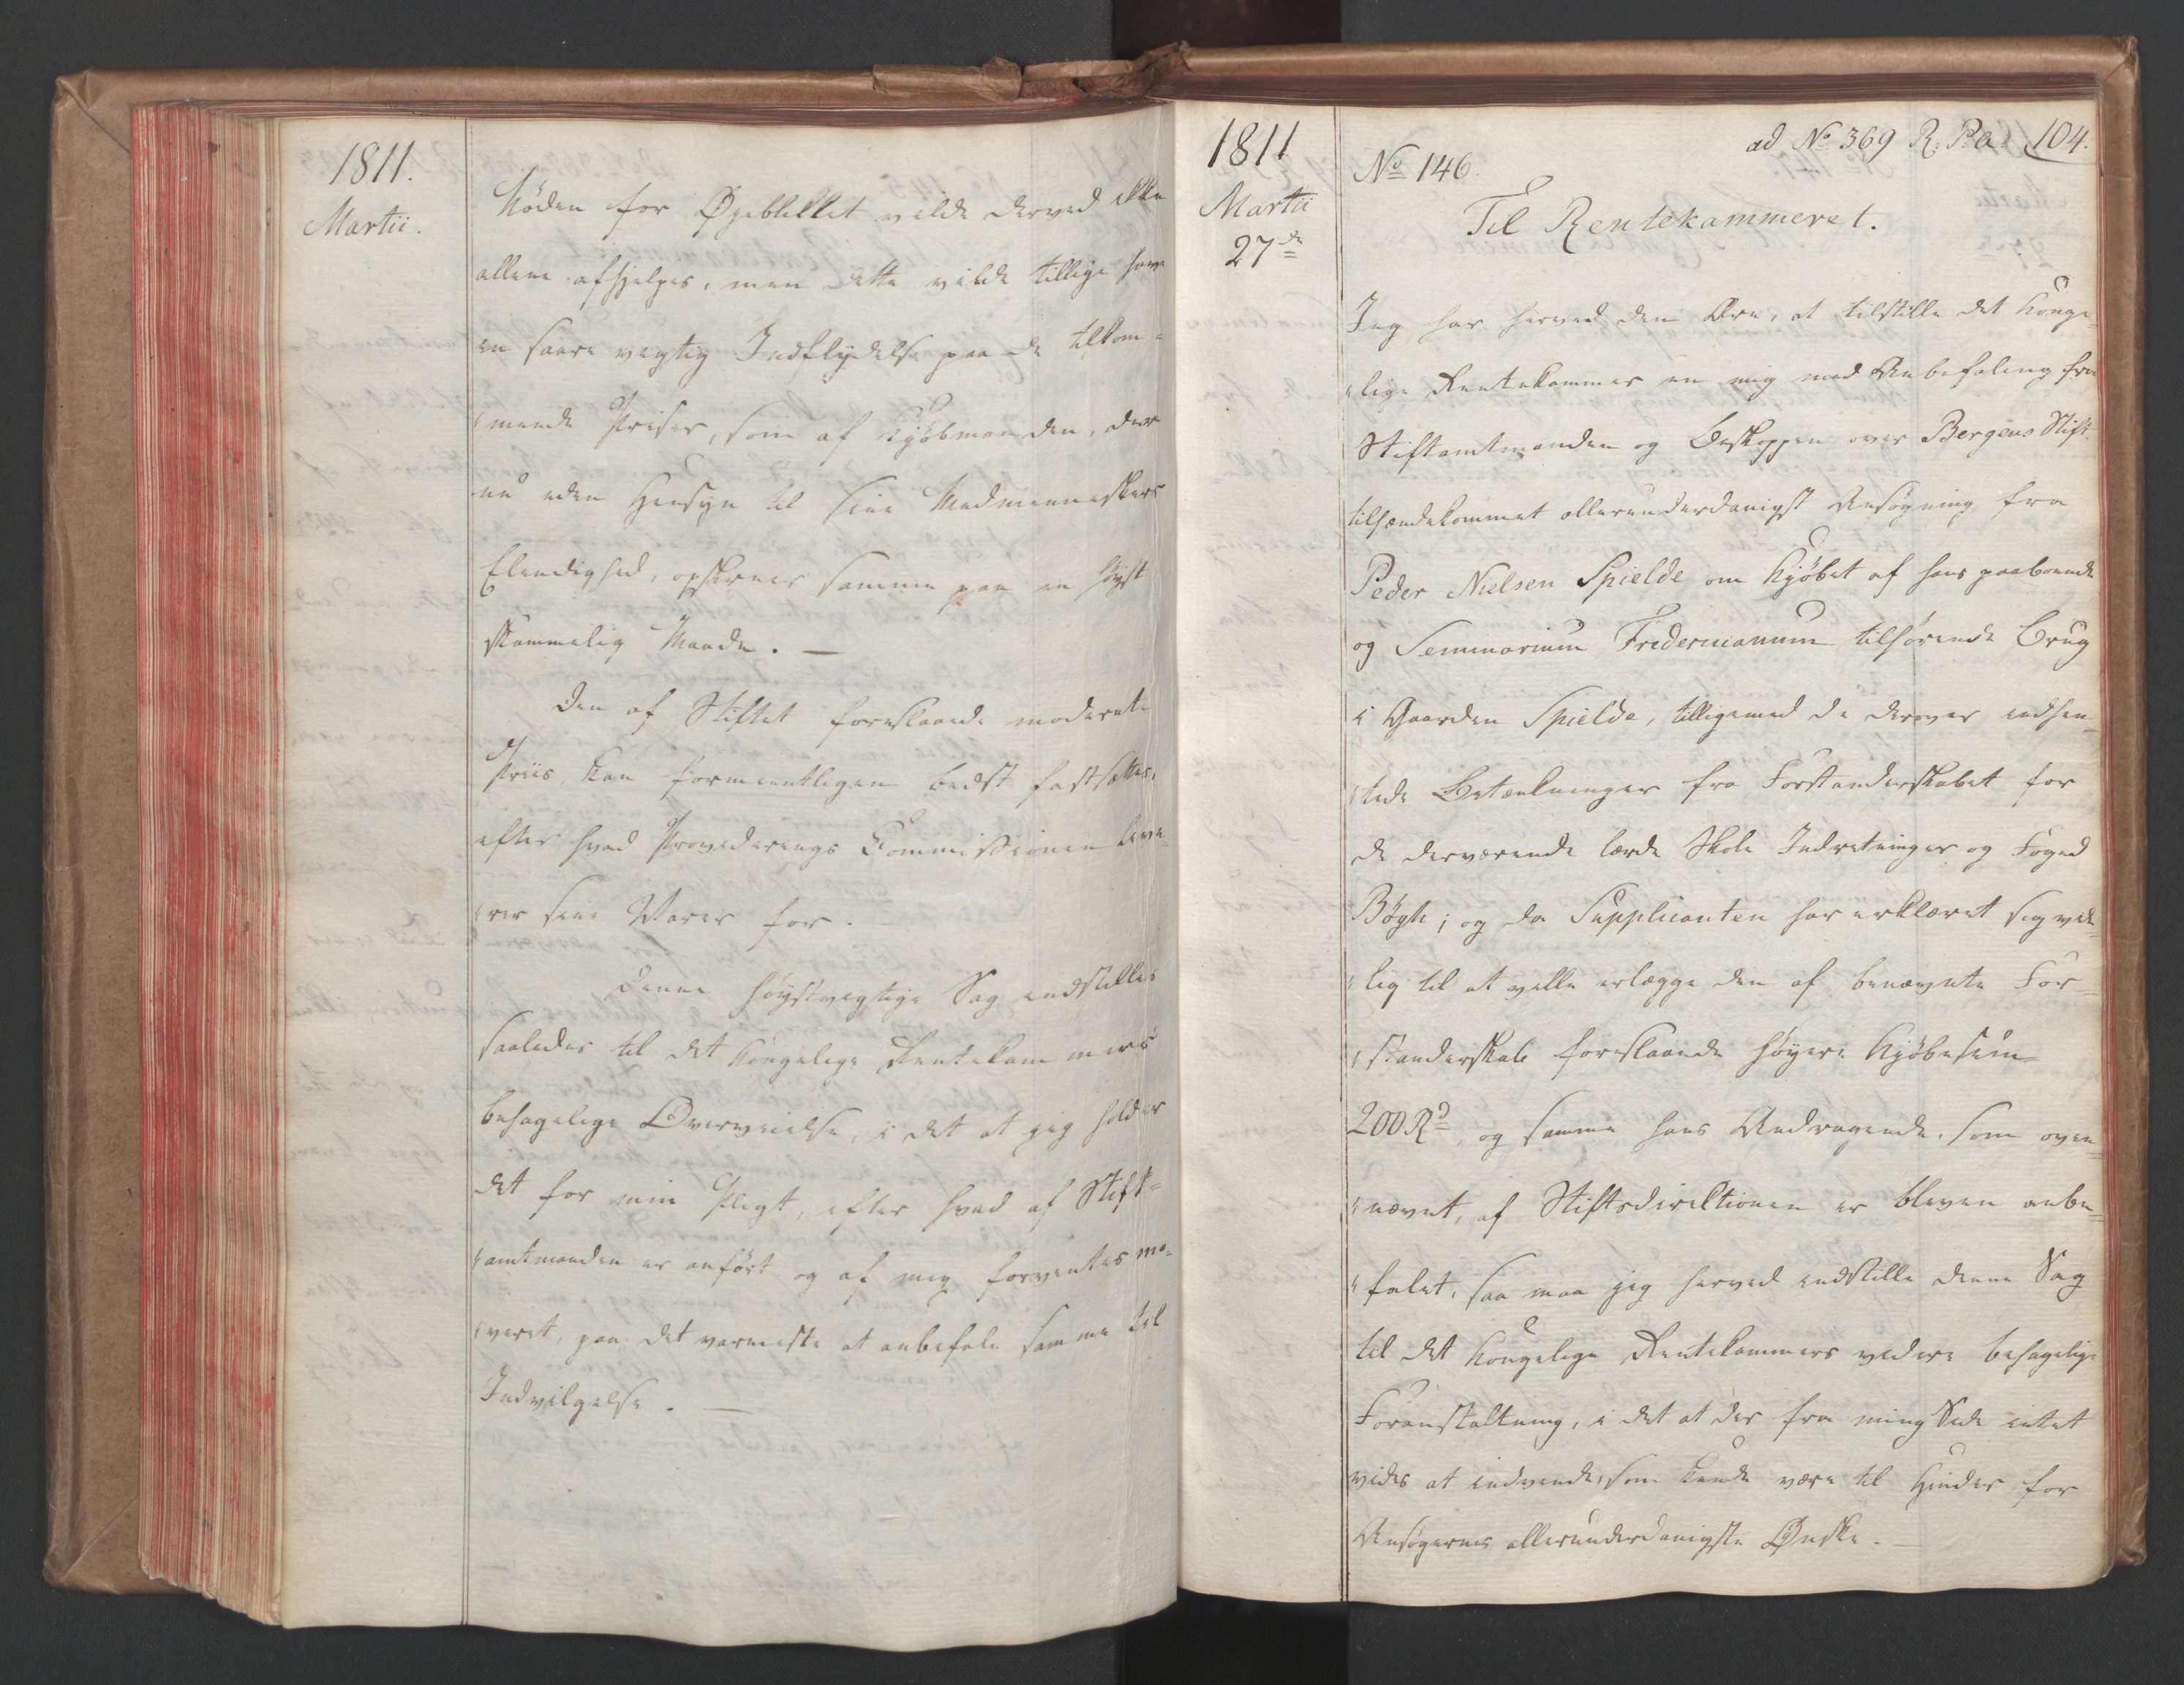 1811.
Martii.
Nöden for Øyeblikket vilde derved ikke
allene afhjelpes, men dette vilde tillige have
en saare vigtig Indflydelse paa de tilkom=
mende Priser, som af Kjøbmanden, der
nu uden Hensyn til sine Medmenneskers
Elendighed, opskrues samme paa en höyst
skammelig Maade. —
Den af Stiftet foreslaaede moderate
Priis, kan formeentligen bedst fastsættes,
efter hvad Provederings Commissionen leve=
rer sine Varer for.
Denne höystvigtige Sag indstilles
saaledes til det Kongelige Rentekammers
behagelige Overveielse, i det at jeg holder
det for min Pligt, efter hvad af Stift=
amtmanden er anført og af mig forventes mo=
veret, paa det varmeste at anbefale samme til
Indvilgelse. —
1811
Martii
27de
ad No 369 R: P: a: 104.
No 146.
Til Rentekammeret.
Jeg har herved den Ære, at tilstille det Konge=
lige Rentekammer en mig med Anbefaling fra
Stiftamtmanden og Biskoppen over Bergens Stift
tilhændekommet allerunderdanigst Ansøgning fra
Peder Nielsen Spielde om Kjøbet af hans paaboende
og Seminarium Fredericianum tilhørende Brug
i Gaarden Spielde, tilligemed de derover indhen=
tede Betænkninger fra Forstanderskabet for
de derværende lærde Skole Indretninger og Foged
Bøgh; og da Supplicanten har erklæret sig vil=
lig til at ville erlægge den af benævnte For=
standerskab foreslaaede høyere Kjøbesum
200 Rd, og samme hans Andragende, som oven=
nævnt, af Stiftsdirektionen er bleven anbe=
falet, saa maa jeg herved indstille denne Sag
til det Kongelige Rentekammers videre behagelige
Foranstaltning, i det at der fra min Side intet
vides at indvende, som kunde være til Hinder for
Ansøgerens allerunderdanigste Ønske. —